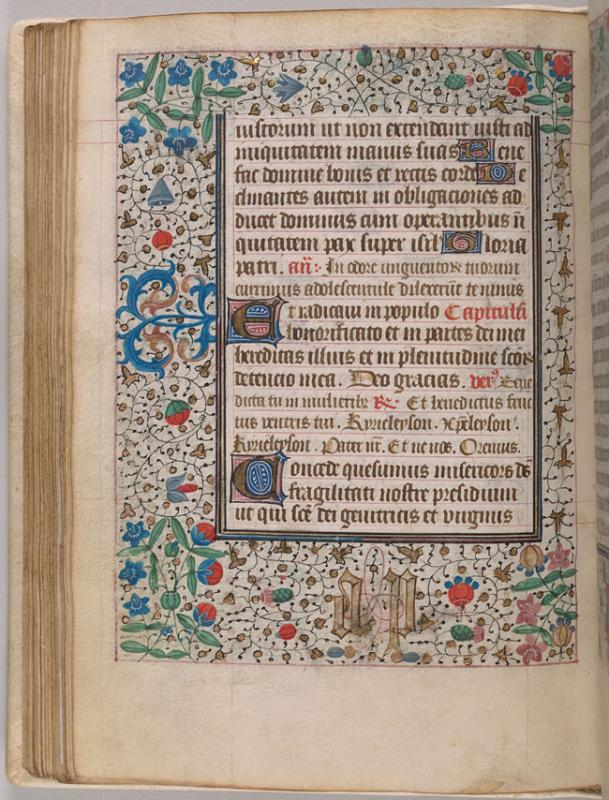 iustorum ut non extendant iusti ad
iniquitatem manus suas Bene
fac domine bonis et rectis corde De
clinantes autem in obligaciones ad
ducet dominus cum operantibus in̄
quitatem pax super isrl̄ Gloria
patri. an̄: In odore unguentoꝝ tuorum
currimus adolescentule dilexerūt te nimis
Et radicavi in populo Capitulū
honorificato et in partes dei mei
hereditas illius et in plenitudine scōꝝ
detencio mea. Deo gracias. verꝰ Bene
dicta tu in mulieribꝰ R̄. Et benedictus fruc
tus ventris tui. Kyrieleyson. xp̄eleyson.
Kyrieleyson. Pater nr̄. Et ne nos. Oremus.
Concede quesumus misericors dꝰ
fragilitati nostre presidium
ut qui scē dei genitricis et virginis